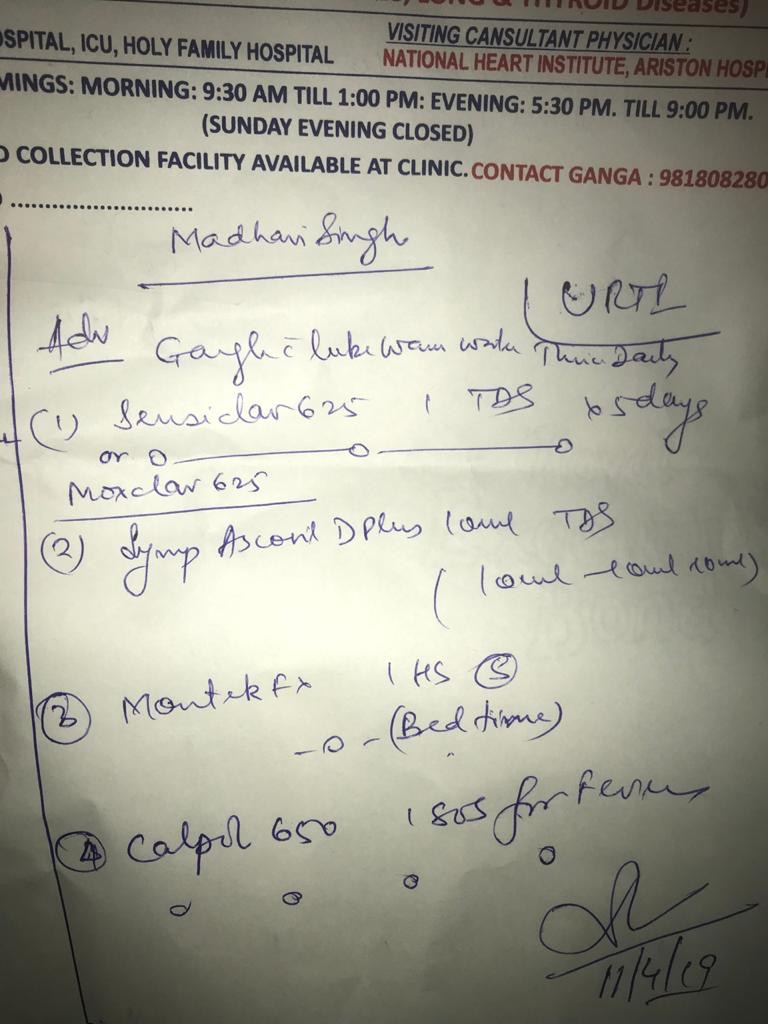 & THYROID Diseases)
OSPITAL, ICU, HOLY FAMILY HOSPITAL
VISITING CANSULTANT PHYSICIAN :
NATIONAL HEART INSTITUTE, ARISTON HOSPI
MINGS: MORNING: 9:30 AM TILL 1:00 PM: EVENING: 5:30 PM. TILL 9:00 PM.
(SUNDAY EVENING CLOSED)
D COLLECTION FACILITY AVAILABLE AT CLINIC. CONTACT GANGA : 981808280
Madhavi Singh
URTI
Adv Gargle c̄ luke warm water Thrice Daily
(1) Sensiclav 625 1 TDS x 5 days
or
Moxclav 625
(2) Syrup Ascoril D Plus 10ml TDS
(10ml - 10ml 10ml)
(3) Montek Fx 1 HS (5)
-0- (Bed time)
(4) Calpol 650 1 SOS for Fever
11/4/19